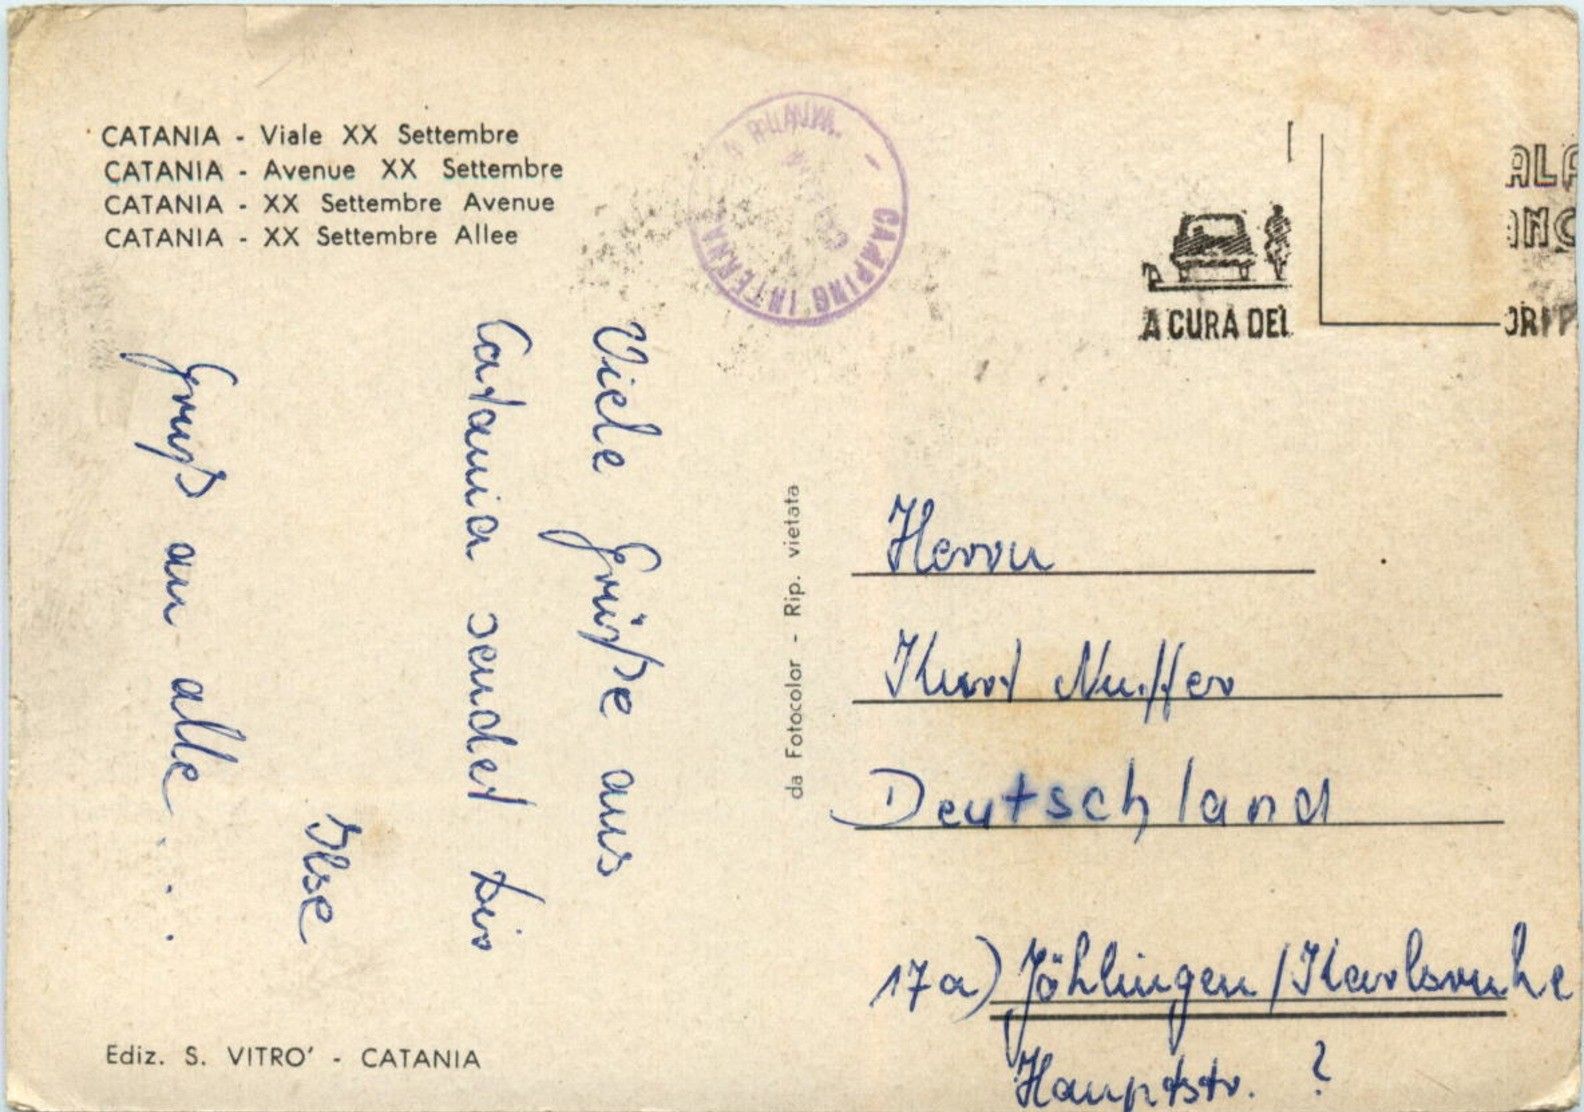 CATANIA - Viale XX Settembre
CATANIA - Avenue XX Settembre
CATANIA - XX Settembre Avenue
CATANIA - XX Settembre Allee
CAMPING INTERNA
A CURA DEL
Viele Grüße aus
Catania sendet Dir
Ilse
Gruß an alle . . .
da Fotocolor - Rip. vietata
Herrn
Kurt
Deutschland
17a) Jöhlingen / Karlsruhe
Hauptstr. ?
Ediz. S. VITRO' - CATANIA